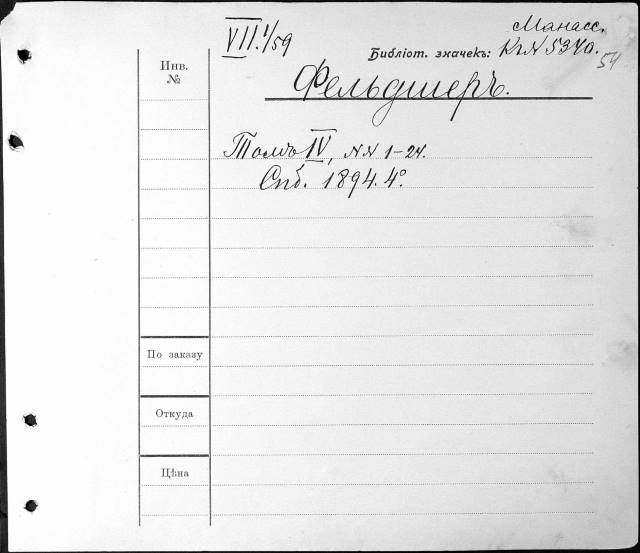 VII.1/59
Манасс.
Библіот. значекъ: КгN 5340.
54
Инв.
№
Фельдшеръ.
Томъ IV, NN 1-24.
Спб. 1894. 4°.
По заказу
Откуда
Цѣна